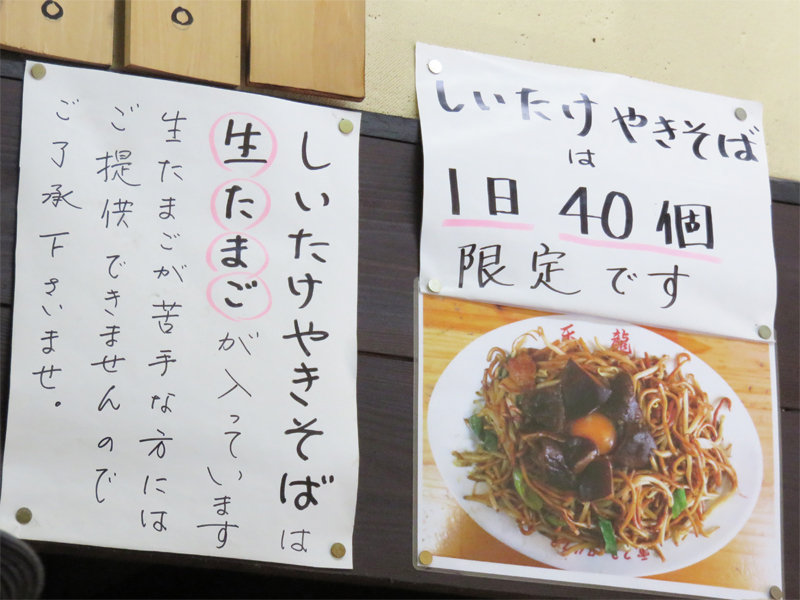 しいたけやきそばは
生たまごが入っています
生たまごが苦手な方には
ご提供できませんので
ご了承下さいませ。
しいたけやきそば
は
1日40個
限定です
天龍